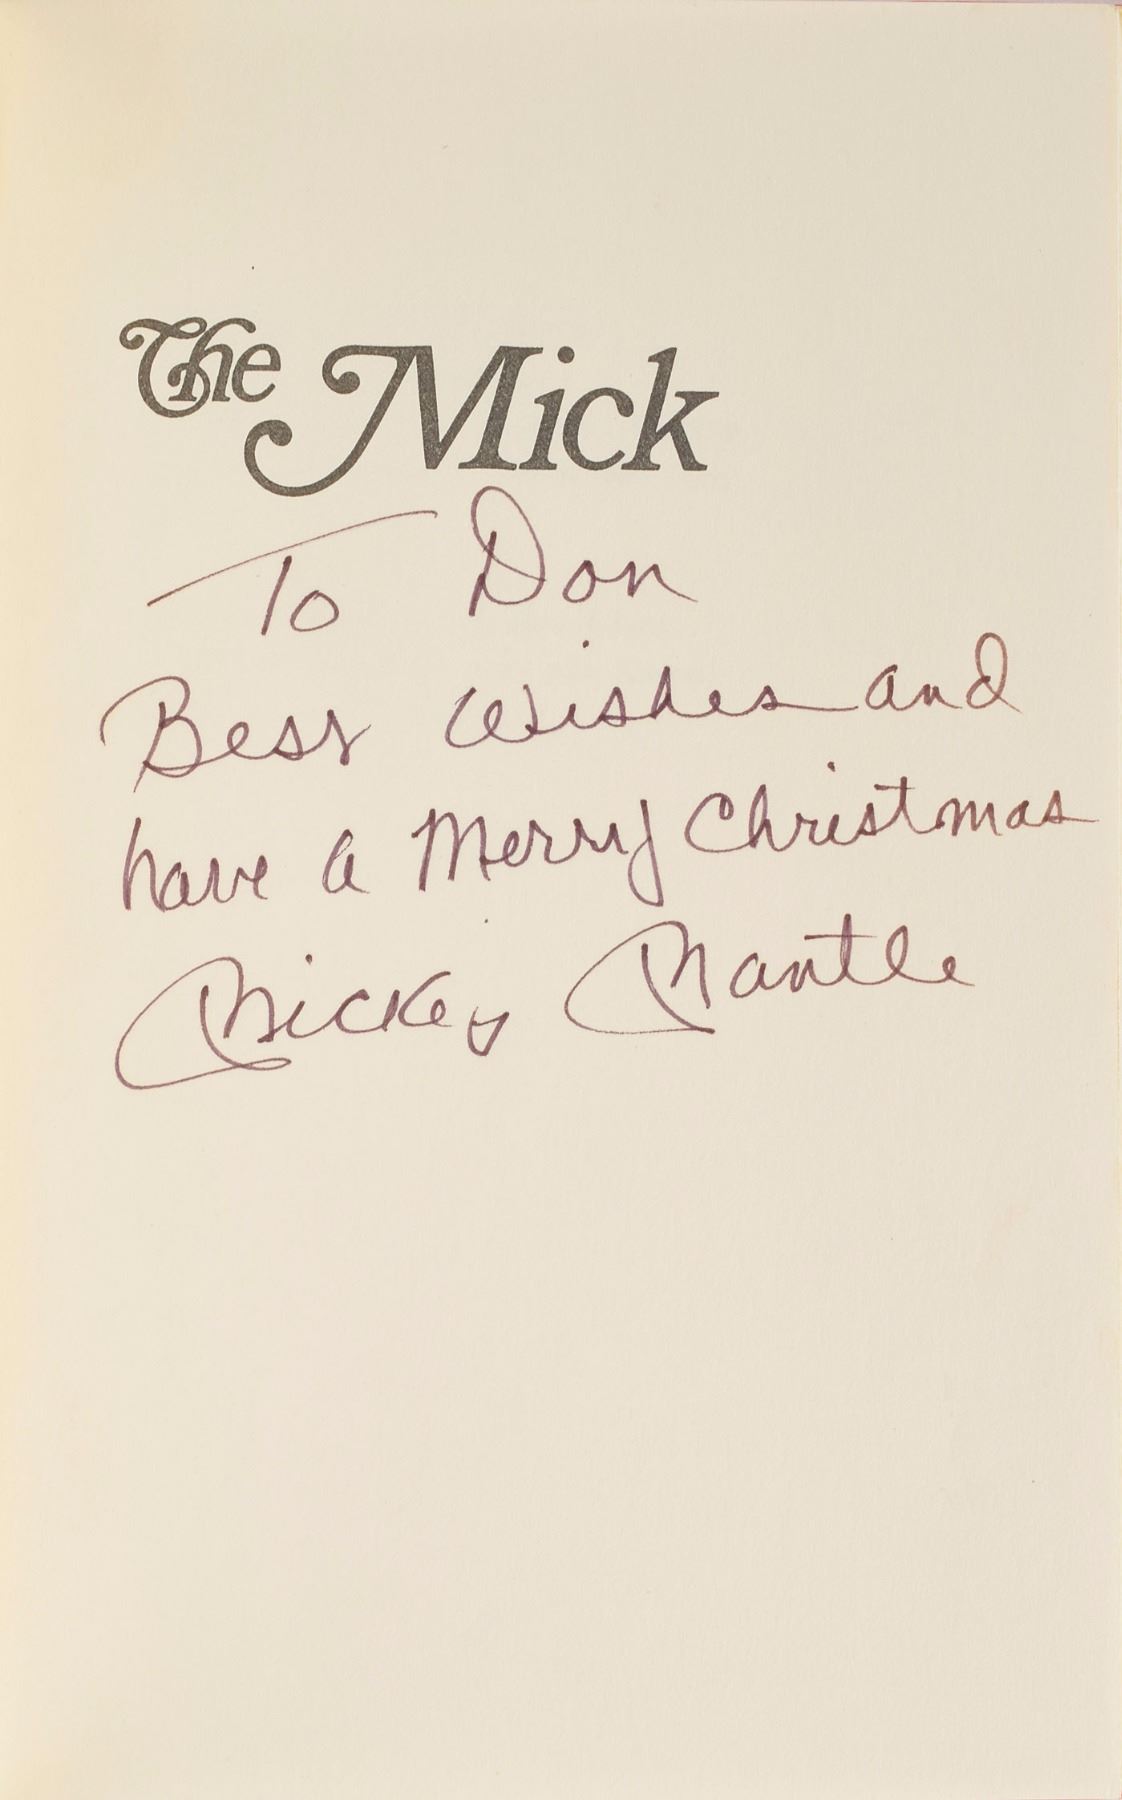 The Mick
To Don
Best Wishes and
have a Merry Christmas
Mickey Mantle